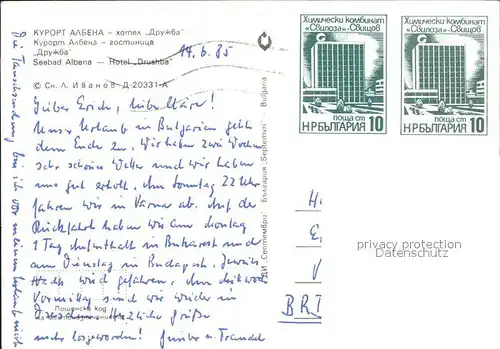 КУРОРТ АЛБЕНА – хотел „Дружба"
Курорт Албена – гостиница
„Дружба"
Seebad Albena — Hotel „Drushba"
14.6.85
© Сн. Л. Иванов Д-20331-А
Lieber Erich, liebe Marie!
Unser Urlaub in Bulgarien geht
dem Ende zu. Wir haben zwei Wochen
sehr schönes Wetter und wir haben
uns gut erholt. Am Sonntag 22 Uhr
fahren wir in Varna ab. Auf der
Rückfahrt haben wir am Montag
1 Tag Aufenthalt in Bukarest und
am Dienstag in Budapest. Jeweils
wird gefahren. Am Mittwoch
Vormittag sind wir wieder in
Dresden. Herzliche Grüße
Пощенски код
РДИ „Септември" България „Septemvri" - Bulgaria
Химически комбинат
„Свилоза"-Свищов
поща ст
НР БЪЛГАРИЯ 10
Химически комбинат
„Свилоза"-Свищов
поща ст
НР БЪЛГАРИЯ 10
H.
E.
V
BRT
privacy protection
Datenschutz